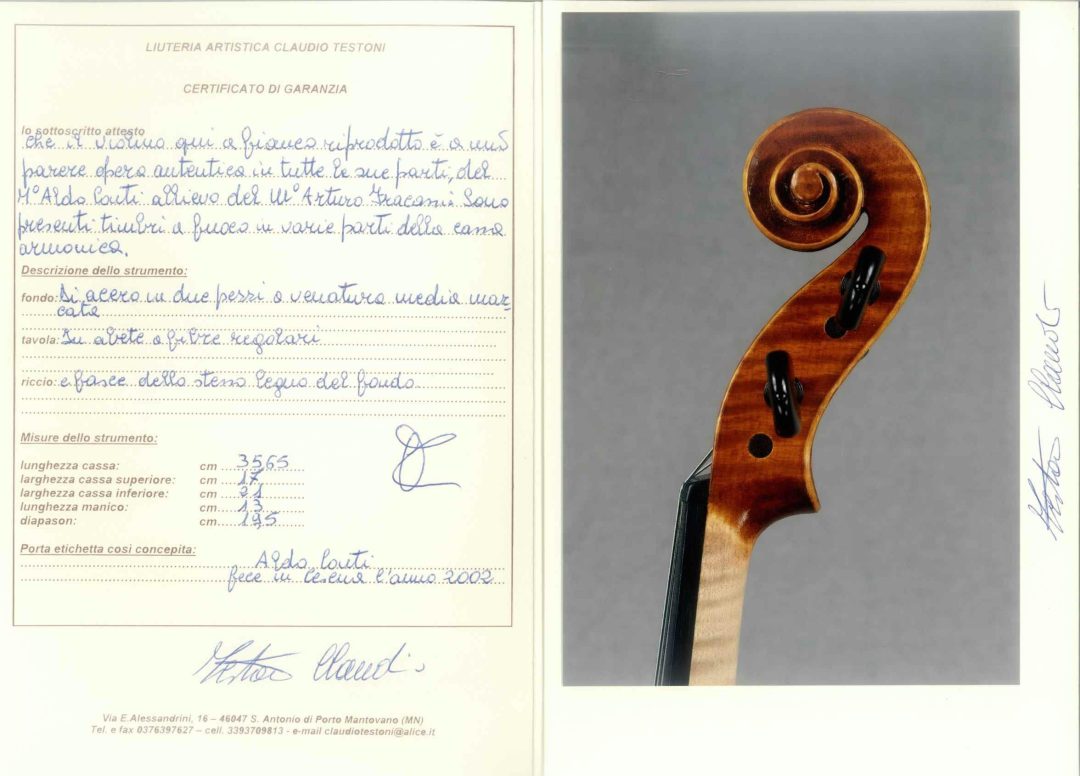 LIUTERIA ARTISTICA CLAUDIO TESTONI
CERTIFICATO DI GARANZIA
Io sottoscritto attesto
che il violino qui a fianco riprodotto è a mio
parere opera autentica in tutte le sue parti, del
M° Aldo Conti allievo del M° Arturo Fracassi. Sono
presenti timbri a fuoco in varie parti della cassa
armonica.
Descrizione dello strumento:
fondo: Di acero in due pezzi a venatura media mar-
cata
tavola: In abete a fibre regolari
riccio: e fasce dello stesso legno del fondo
Misure dello strumento:
lunghezza cassa: cm 35,65
larghezza cassa superiore: cm 17
larghezza cassa inferiore: cm 21
lunghezza manico: cm 13
diapason: cm 19,5
Porta etichetta così concepita:
Aldo Conti
fece in Cesena l'anno 2002
Testoni Claudio
Via E.Alessandrini, 16 – 46047 S. Antonio di Porto Mantovano (MN)
Tel. e fax 0376397627 – cell. 3393709813 - e-mail claudiotestoni@alice.it
Testoni Claudio